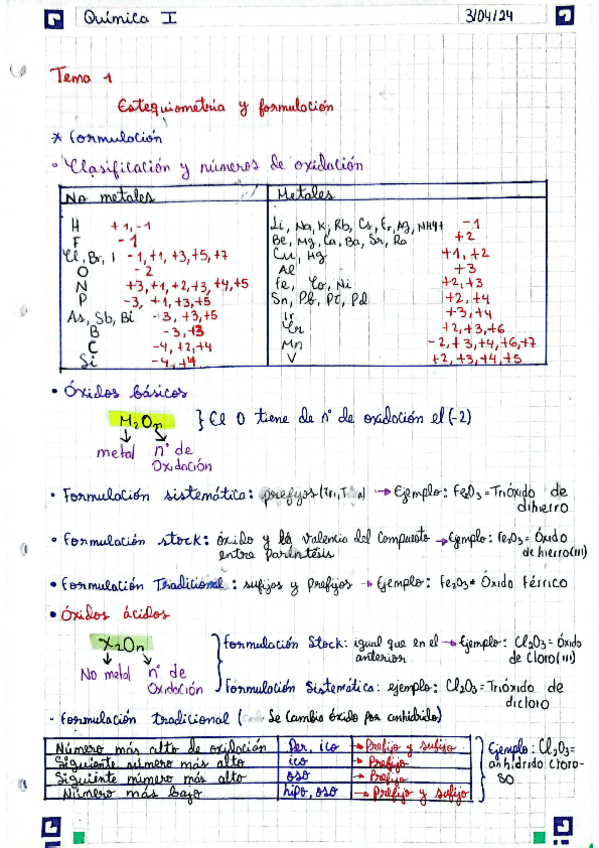 Química I 3/04/24
Tema 1
Estequiometría y formulación
* Formulación
• Clasificación y números de oxidación
No metales Metales
H +1, -1 Li, Na, K, Rb, Cs, Fr, Ag, NH4+ -1
F -1 Be, Mg, Ca, Ba, Sr, Ra +2
Cl, Br, I -1, +1, +3, +5, +7 Cu, Hg +1, +2
O -2 Al +3
N +3, +1, +2, +3, +4, +5 Fe, Co, Ni +2, +3
P -3, +1, +3, +5 Sn, Pb, Pt, Pd +2, +4
As, Sb, Bi -3, +3, +5 Ir +3, +4
B -3, +3 Cr +2, +3, +6
C -4, +2, +4 Mn -2, +3, +4, +6, +7
Si -4, +4 V +2, +3, +4, +5
• Óxidos básicos
M2On } El O tiene de nº de oxidación el (-2)
metal nº de
Oxidación
• Formulación sistemática: prefijos (Tri, → Ejemplo: Fe2O3 = Trióxido de
dihierro
• Formulación stock: óxido y la valencia del compuesto → Ejemplo: Fe2O3 = Óxido
entre paréntesis de hierro (III)
• Formulación Tradicional: sufijos y Prefijos → Ejemplo: Fe2O3 = Óxido Férrico
• Óxidos ácidos
X2On Formulación Stock: igual que en el → Ejemplo: Cl2O3 = Óxido
anterior de Cloro (III)
No metal nº de
Oxidación Formulación Sistemática: ejemplo: Cl2O3 = Trióxido de
dicloro
- Formulación tradicional ( Se cambia óxido por anhídrido)
Número más alto de oxidación Per, ico → Prefijo y sufijo
Siguiente número más alto ico → Prefijo
Siguiente número más alto oso → Prefijo
Número más bajo hipo, oso → Prefijo y sufijo
Ejemplo: Cl2O3 =
anhídrido cloro-
so